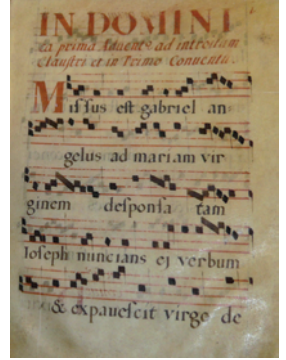 IN DOMINI
ca prima Aduent⁹ ad introitum
Claustri et in Primo Conuentu.
Missus est gabriel an
gelus ad mariam vir
ginem desponsa tam
Ioseph nuncians ej verbum
& expauescit virgo de